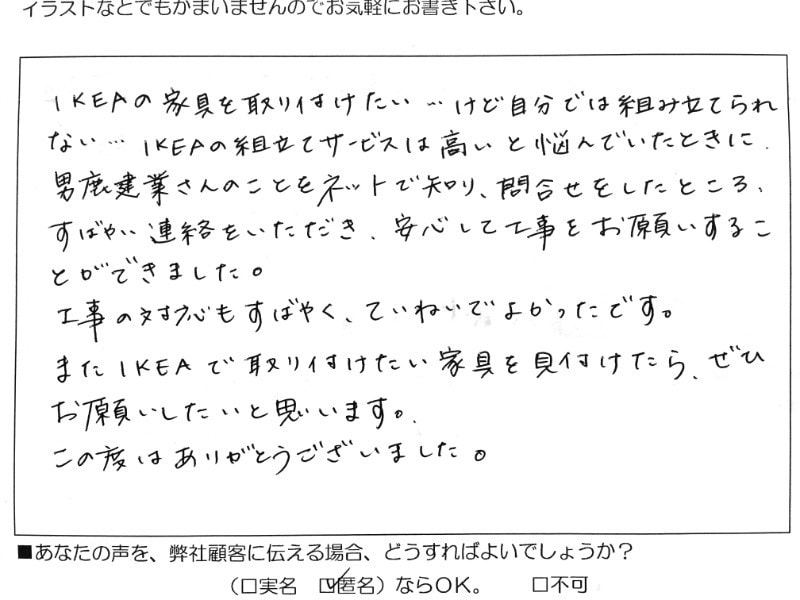 イラストなどでもかまいませんのでお気軽にお書き下さい。
IKEAの家具を取り付けたい…けど自分では組み立てられ
ない…IKEAの組立てサービスは高いと悩んでいたときに、
男鹿建業さんのことをネットで知り、問合せをしたところ、
すばやい連絡をいただき、安心して工事をお願いするこ
とができました。
工事の対応もすばやく、ていねいでよかったです。
またIKEAで取り付けたい家具を見付けたら、ぜひ
お願いしたいと思います。
この度はありがとうございました。
■あなたの声を、弊社顧客に伝える場合、どうすればよいでしょうか？
（□実名 ☑匿名）ならOK。 □不可